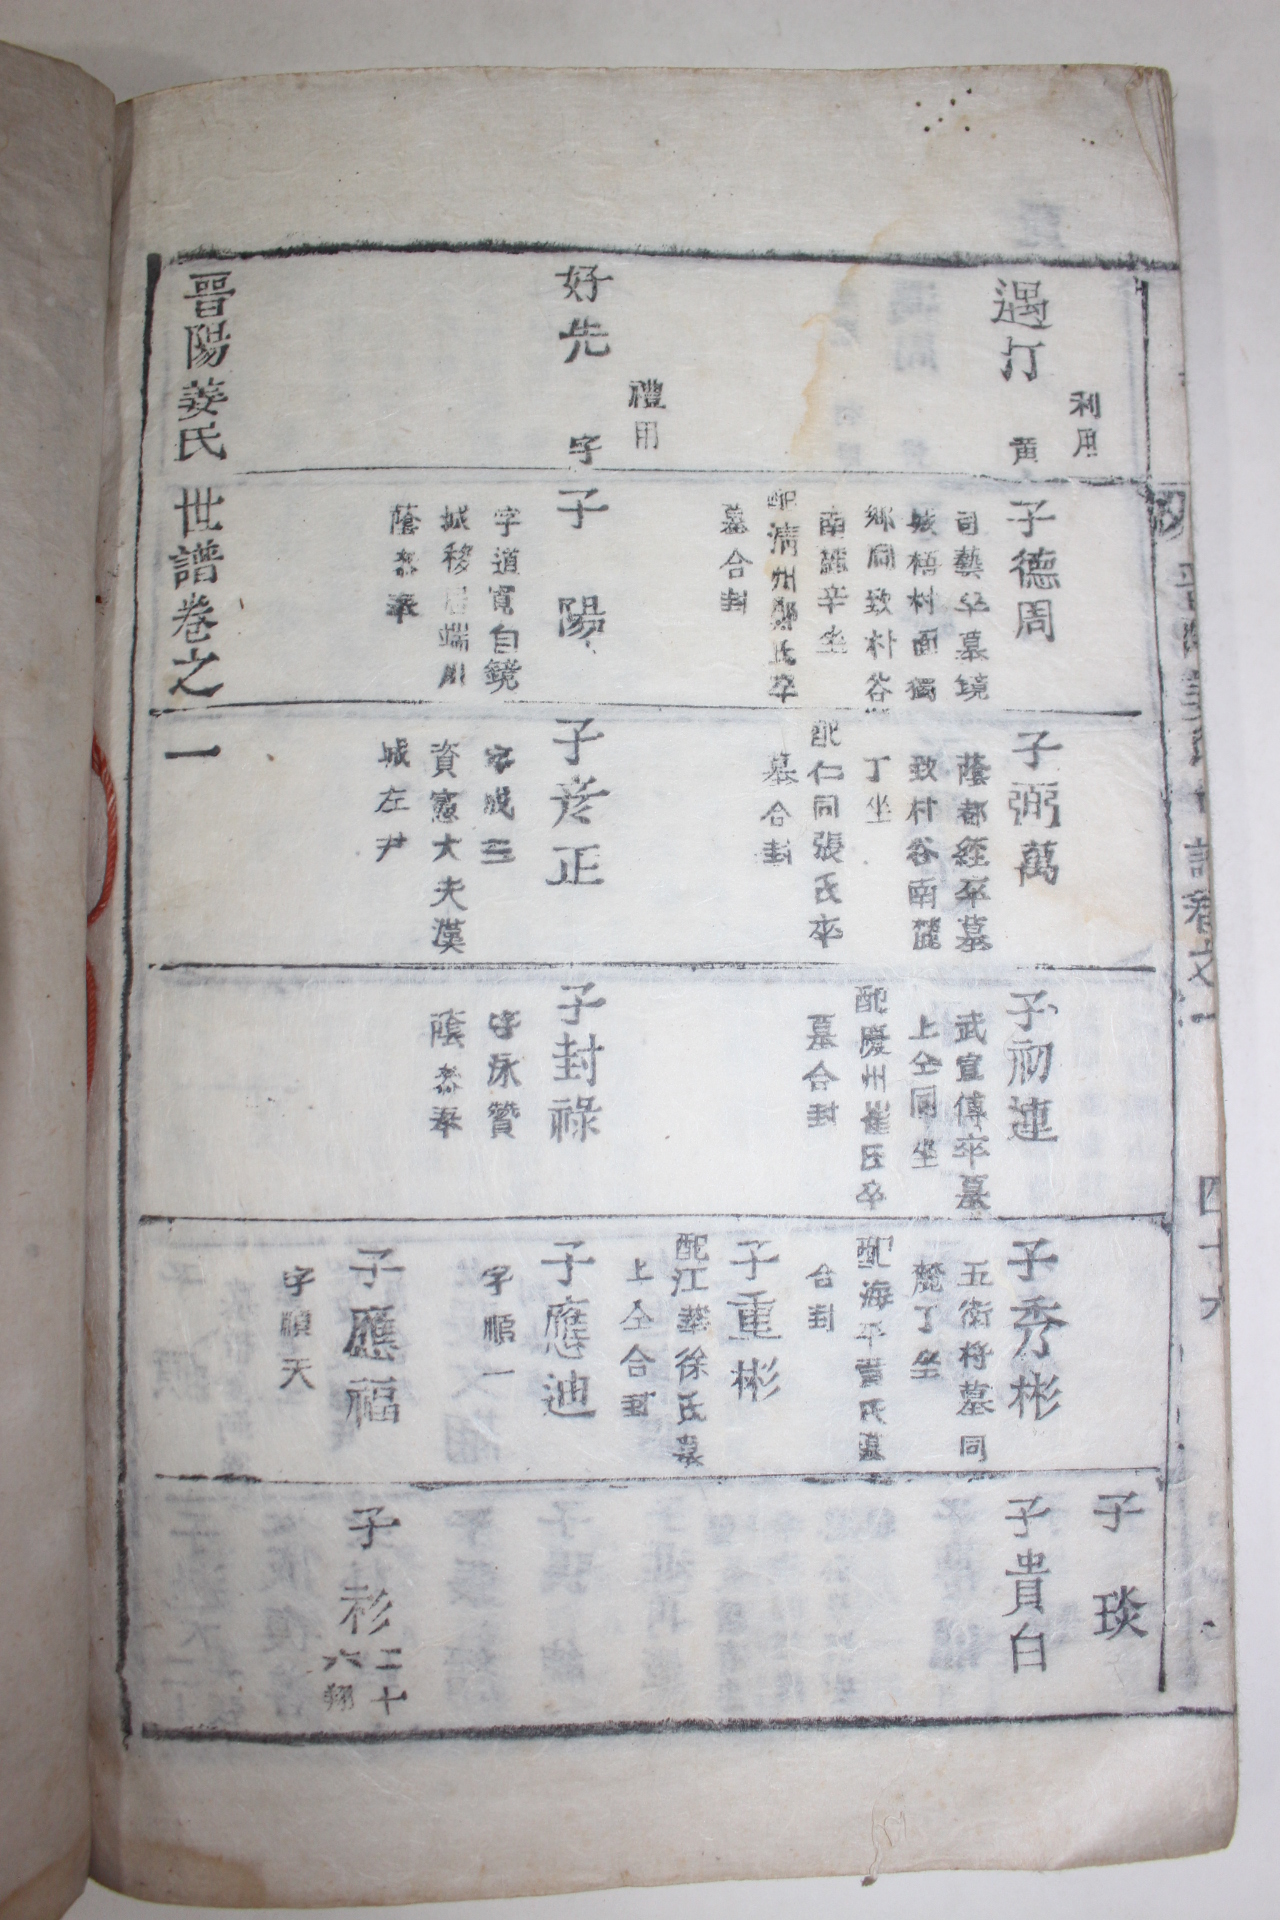 利用
遇汀 黄
禮用
好先 字
晋陽姜氏世譜卷之一
子德周
司藝卒墓鏡
城梧村面獨
鄕廟致朴谷
南麓辛坐
配淸州鄭氏卒
墓合封
子陽
字道寬自鏡
城移居端川
蔭參奉
子弼萬
蔭都經卒墓
致村谷南麓
丁坐
配仁同張氏卒
墓合封
子彦正
字成三
資憲大夫漢
城左尹
子初連
武宣傳卒墓
上仝同坐
配慶州崔氏卒
墓合封
子封祿
字泳贊
蔭參奉
子秀彬
五衛将墓同
麓丁坐
配海平賈氏墓
合封
子重彬
配江華徐氏墓
上仝合封
子應迪
字順一
子應福
字順天
子琰
子貴白
子衫 二十
六翔
四十六